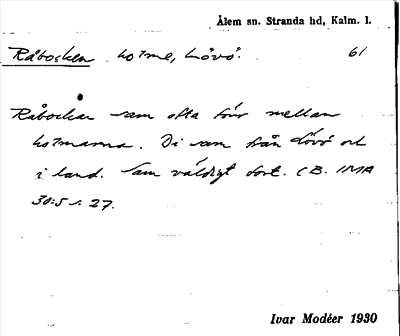 Ålem sn. Stranda hd, Kalm. l.
Råbocken holme, Lövö. 61
Råbockar sam ofta förr mellan
holmarna. Di sam från Lövö och
i land. Sam väldigt fort. CB. IMA
30:5 s. 27.
Ivar Modéer 1930